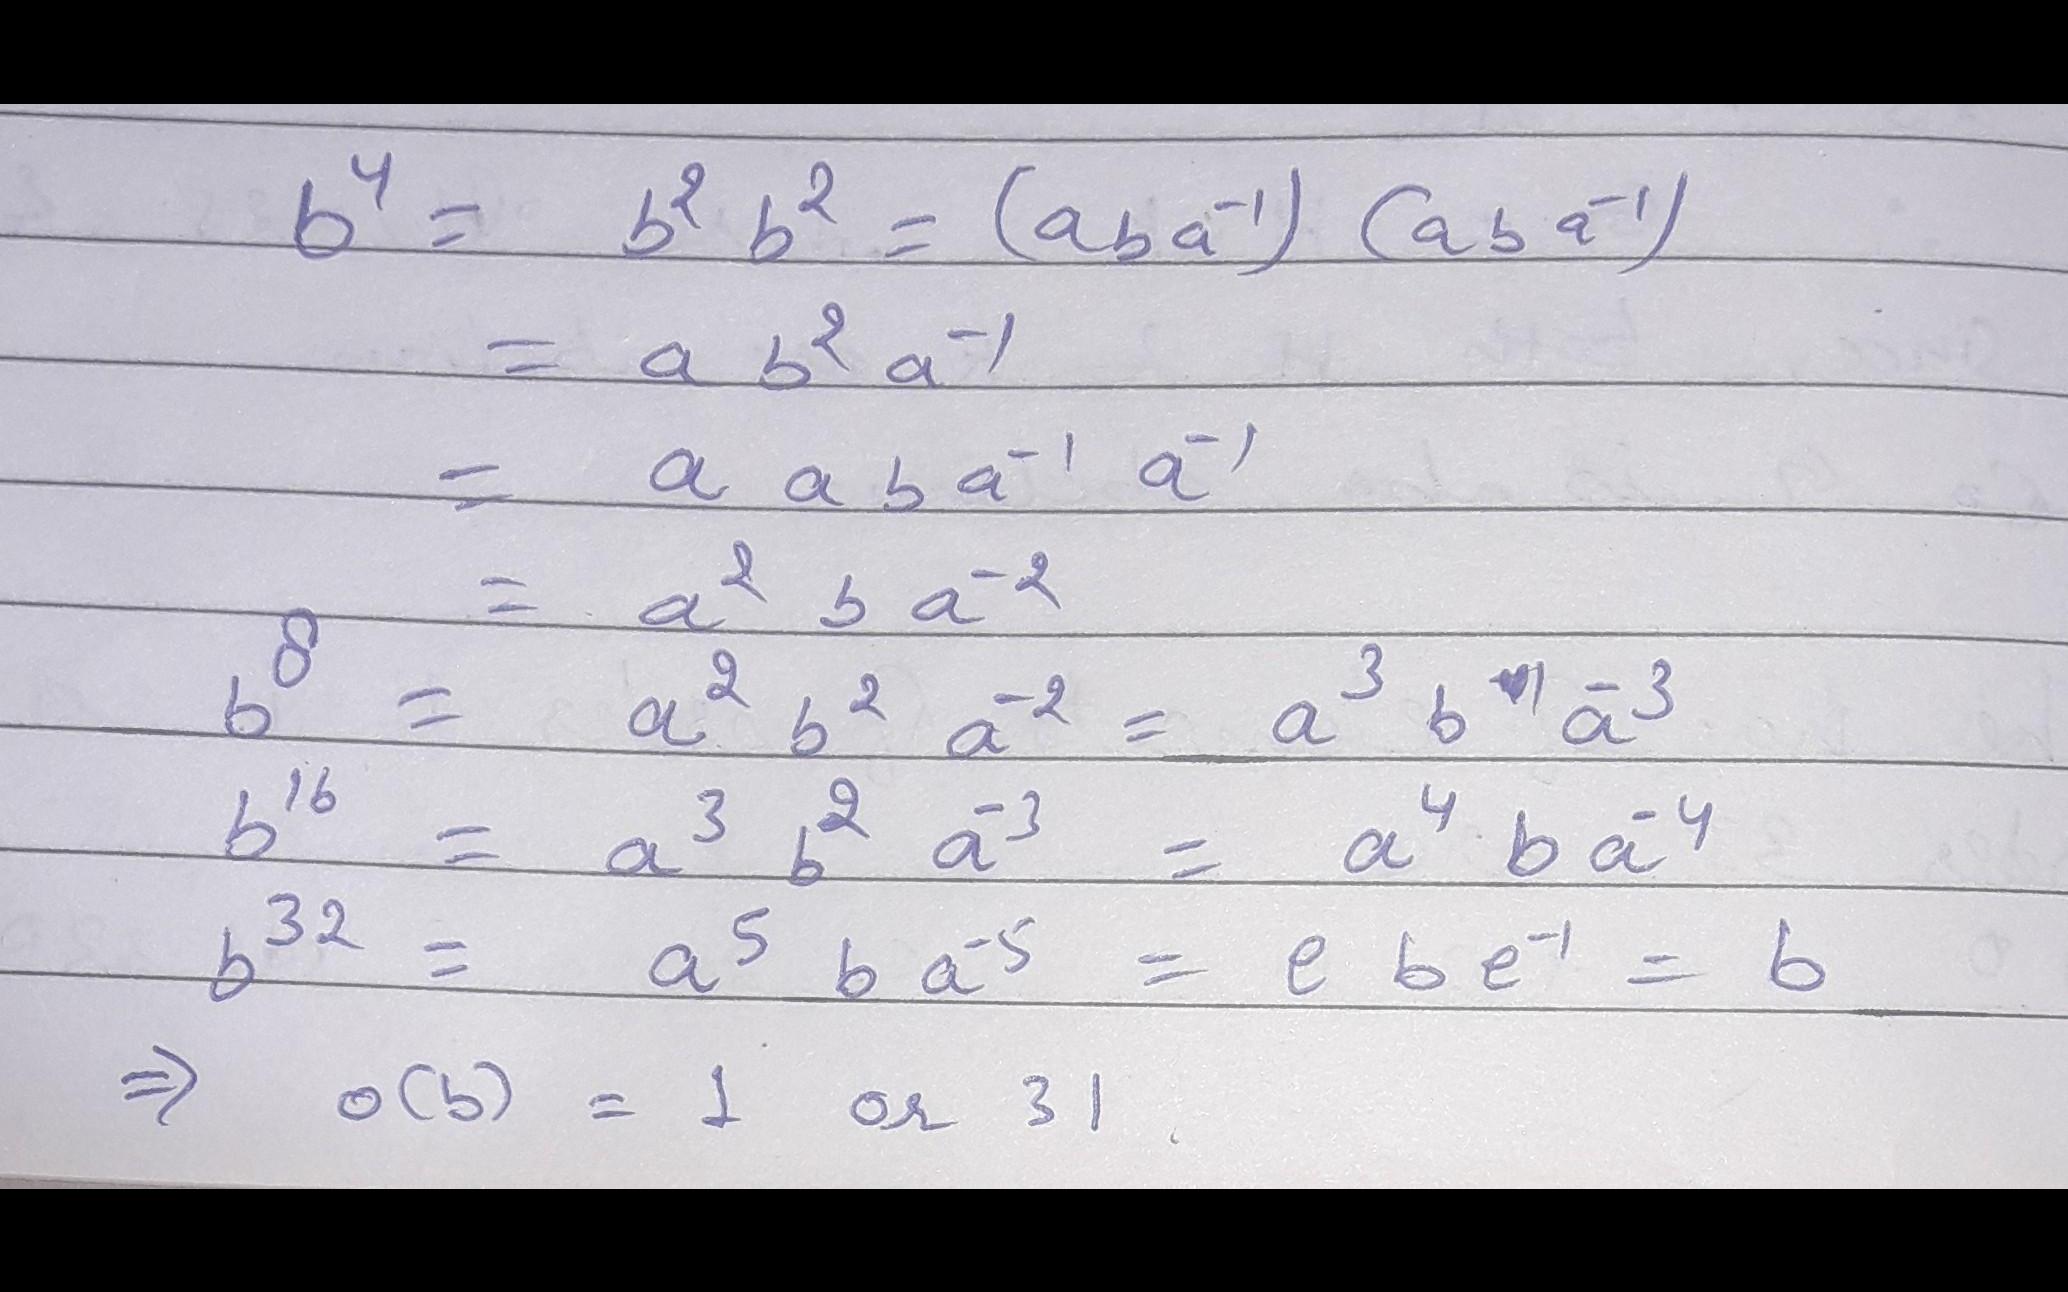 b⁴ = b² b² = (a b a⁻¹) (a b a⁻¹)
= a b² a⁻¹
= a a b a⁻¹ a⁻¹
= a² b a⁻²
b⁸ = a² b² a⁻² = a³ b a⁻³
b¹⁶ = a³ b² a⁻³ = a⁴ b a⁻⁴
b³² = a⁵ b a⁻⁵ = e b e⁻¹ = b
⇒ o(b) = 1 or 31.